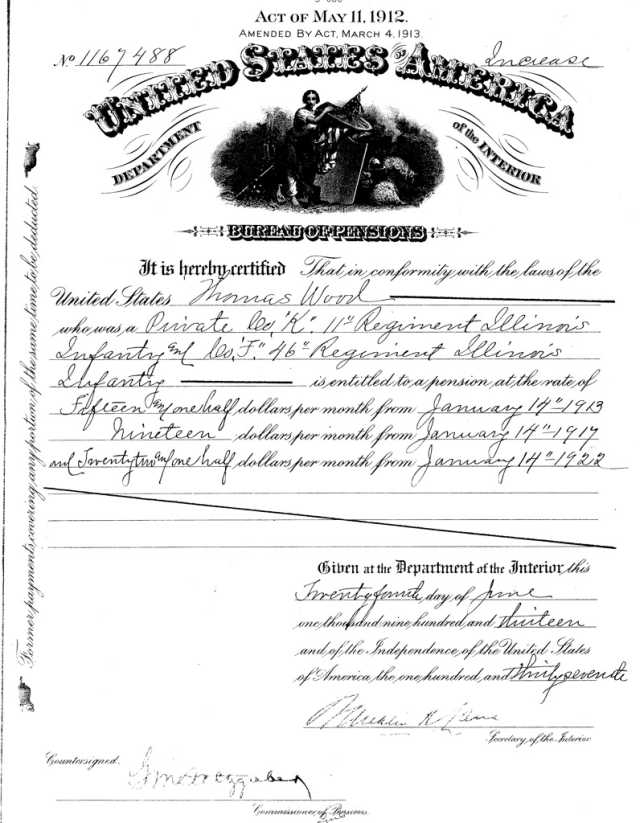 ACT OF MAY 11, 1912.
AMENDED BY ACT, MARCH 4, 1913.
No 1167488
Increase
UNITED STATES OF AMERICA
DEPARTMENT of the INTERIOR
BUREAU OF PENSIONS
It is hereby certified That in conformity with the laws of the
United States Thomas Wood
who was a Private Co, "K". 11" Regiment Illinois
Infantry and Co, "F." 46" Regiment Illinois
Infantry is entitled to a pension at the rate of
Fifteen and one half dollars per month from January 14" 1913
Nineteen dollars per month from January 14" 1917
and Twenty two and one half dollars per month from January 14" 1922
Former payments covering any portion of the same time to be deducted.
Given at the Department of the Interior this
Twenty fourth day of June
one thousand nine hundred and thirteen
and of the Independence of the United States
of America the one hundred and thirty seventh
Secretary of the Interior.
Countersigned.
Commissioner of Pensions.